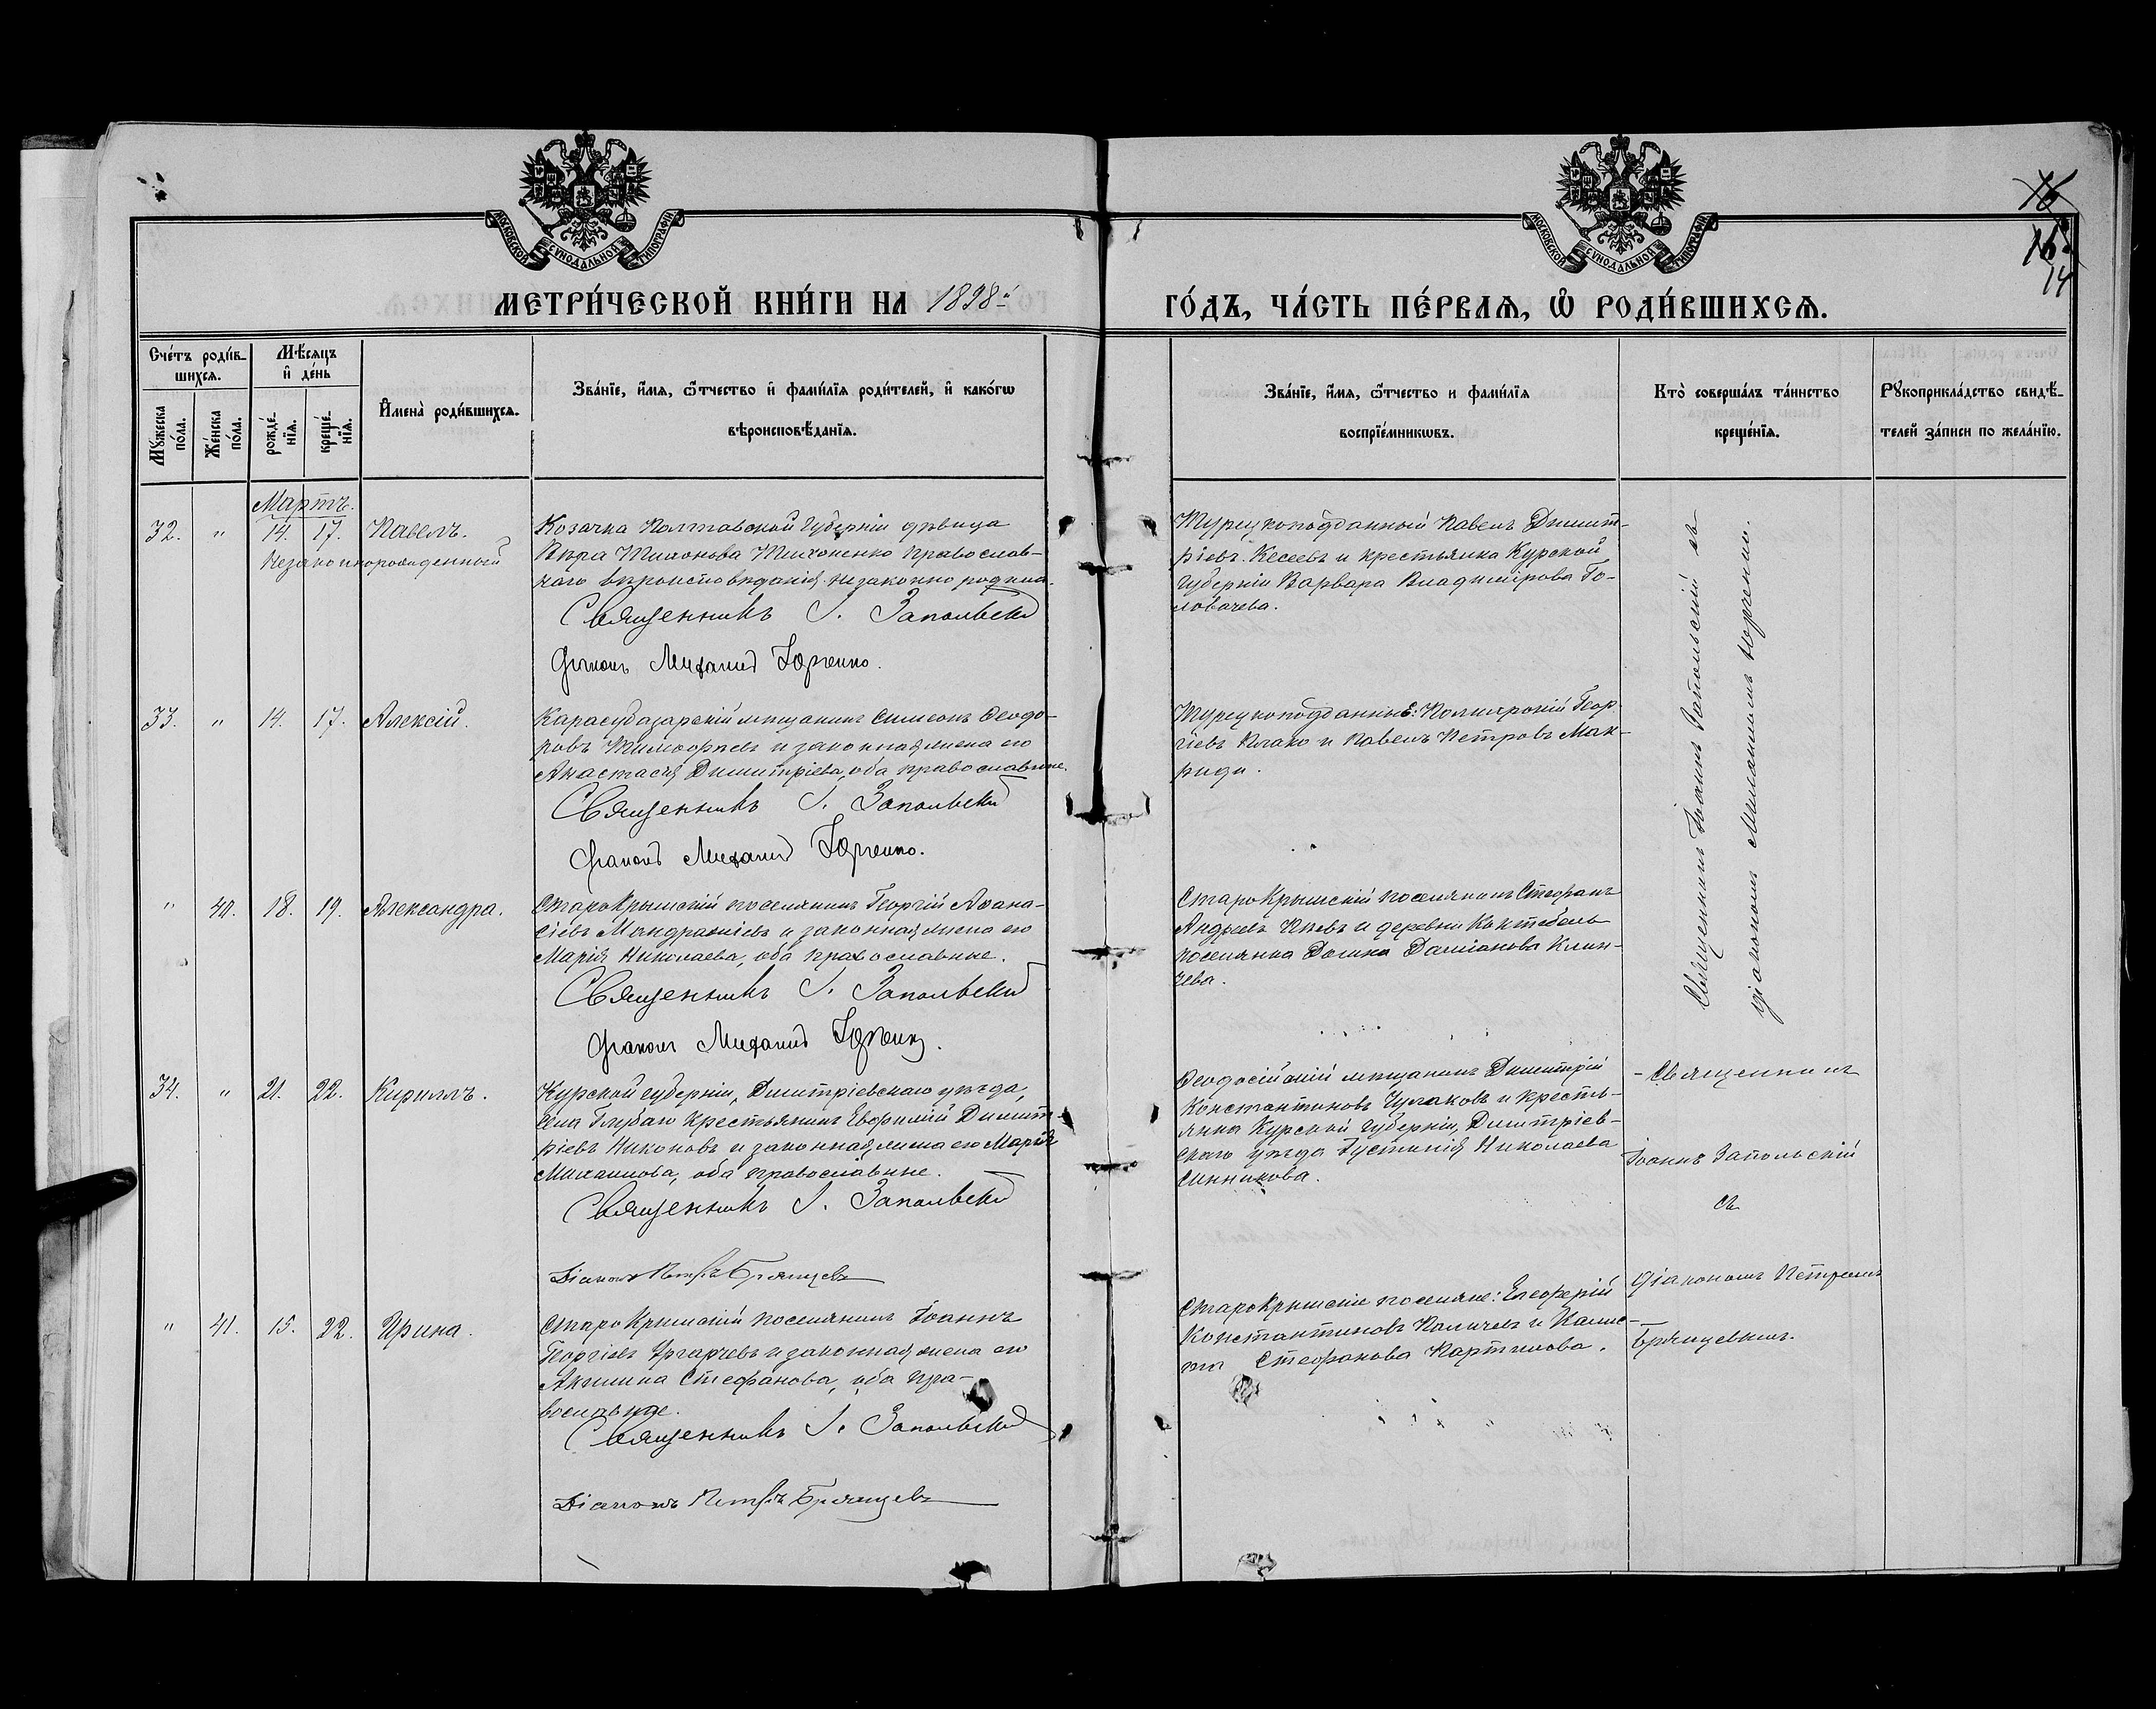 МОСКОВСКОЙ СѴНОДАЛЬНОЙ ТИПОГРАФІИ
МОСКОВСКОЙ СѴНОДАЛЬНОЙ ТИПОГРАФІИ
16
15
14
МЕТРИ́ЧЕСКОЙ КНИ́ГИ НА 1898й
ГО́ДЪ, ЧА́СТЬ ПЕ́РВАѦ, Ѡ РОДИ́ВШИХСѦ.
Сче́тъ роди́в-
шихсѧ.
Мѣ́сѧцъ
и де́нь
Мꙋ́жеска по́ла.
Же́нска по́ла.
рожде́-
нїѧ.
креще́-
нїѧ.
Имена̀ роди́вшихсѧ.
Зва́нїе, и́мѧ, ѻ҆́тчество и фами́лїѧ роди́телей, и како́гѡ
вѣроисповѣ́данїѧ.
Зва́нїе, и́мѧ, ѻ҆́тчество и фами́лїѧ
воспрїе́мникѡвъ.
Кто̀ соверша́лъ та́инство
креще́нїѧ.
Рꙋкоприкла́дство свидѣ́-
телей за́писи по жела́нїю.
Мартъ.
32. " 14. 17. Павелъ.
Незаконнорожденный
Козачка Полтавской Губерніи дѣвица
Вѣра Тихонова Тихоненко православ-
наго вѣроисповѣданія незаконно родила.
Священникъ І. Запольскій
Діаконъ Михаилъ Юрченко.
Турецкоподданный Павелъ Димит-
ріевъ Кесеевъ и крестьянка Курской
Губерніи Варвара Владимірова Го-
ловачева.
Священникъ Іоаннъ Запольскій съ
діакономъ Михаиломъ Юрченко.
33. " 14. 17. Алексій.
Карасубазарскій мѣщанинъ Симеонъ Ѳеодо-
ровъ и законная жена его
Анастасія Димитріева, оба православные.
Священникъ І. Запольскій
Діаконъ Михаилъ Юрченко.
Турецкоподданные: Геор-
гіевъ Влахо и Павелъ Петровъ Мак-
риди.
" 40. 18. 19. Александра.
Старокрымскій поселянинъ Георгій Аѳана-
сіевъ и законная жена его
Марія Николаева, оба православные.
Священникъ І. Запольскій
Діаконъ Михаилъ Юрченко.
Старокрымскій поселянинъ Стефанъ
Андреевъ и деревни Коктебель
поселянка Домна Даміанова Клин-
чева.
34. " 21. 22. Кириллъ.
Курской губерніи, Димитріевскаго уѣзда,
села Глубаго крестьянинъ Евфимій Димит-
ріевъ Никоновъ и законная жена его Марія
Михаилова, оба православные.
Священникъ І. Запольскій
Діаконъ Петръ Брянцевъ
Ѳеодосійскій мѣщанинъ Димитрій
Константиновъ Чулаковъ и кресть-
янка Курской Губерніи, Димитріев-
скаго уѣзда Іустинія Николаева
Синникова.
- Священникъ
Іоаннъ Запольскій
съ
діакономъ Петромъ
Брянцевымъ.
" 41. 15. 22. Ирина.
Старокрымскій поселянинъ Іоаннъ
Георгіевъ и законная жена его
Акилина Стефанова, оба пра-
вославные.
Священникъ І. Запольскій
Діаконъ Петръ Брянцевъ
Старокрымскіе поселяне: Елеферій
Константиновъ Паличевъ и
Стефанова Картилова.